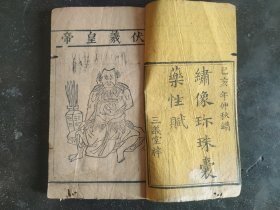 己亥年仲秋鐫
繡像珎珠囊
藥性賦
三堂梓
伏羲皇帝